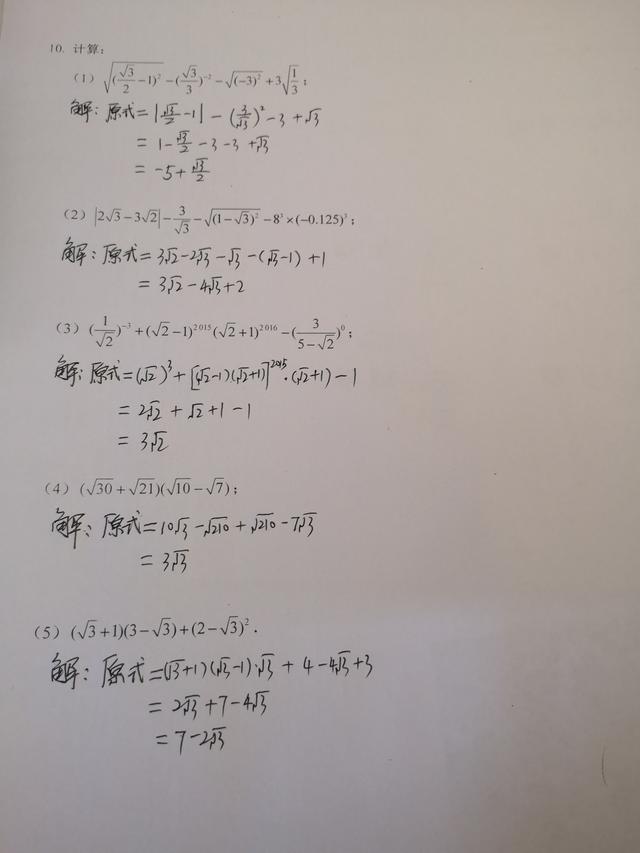 10. 计算:
(1) √((√3/2−1)²)−(√3/3)⁻²−√((−3)²)+3√(1/3);
解: 原式=|√3/2−1|−(3/√3)²−3+√3
=1−√3/2−3−3+√3
=−5+√3/2
(2) |2√3−3√2|−3/√3−√((1−√3)²)−8³×(−0.125)³;
解: 原式=3√2−2√3−√3−(√3−1)+1
=3√2−4√3+2
(3) (1/√2)⁻³+(√2−1)²⁰¹⁵(√2+1)²⁰¹⁶−(3/(5−√2))⁰;
解: 原式=(√2)³+[(√2−1)(√2+1)]²⁰¹⁵·(√2+1)−1
=2√2+√2+1−1
=3√2
(4) (√30+√21)(√10−√7);
解: 原式=10√3−√210+√210−7√3
=3√3
(5) (√3+1)(3−√3)+(2−√3)².
解: 原式=(√3+1)(√3−1)·√3+4−4√3+3
=2√3+7−4√3
=7−2√3